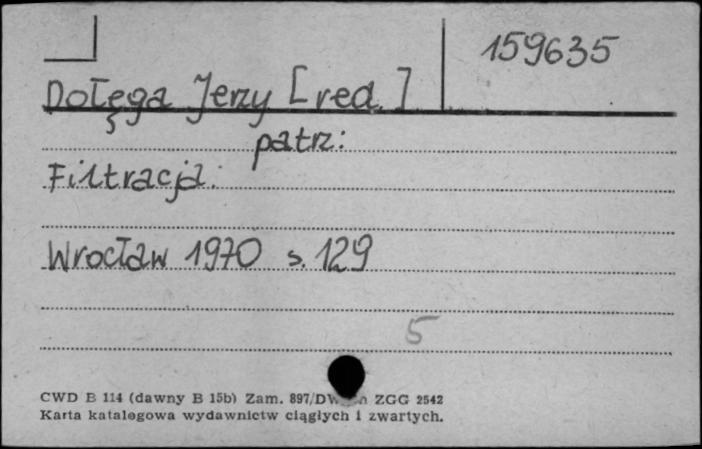 159635
Dołęga Jerzy [red.]
patrz:
Filtracja.
Wrocław 1970 s. 129
5
CWD B 114 (dawny B 15b) Zam. 897/DW ZGG 2542
Karta katalogowa wydawnictw ciągłych i zwartych.